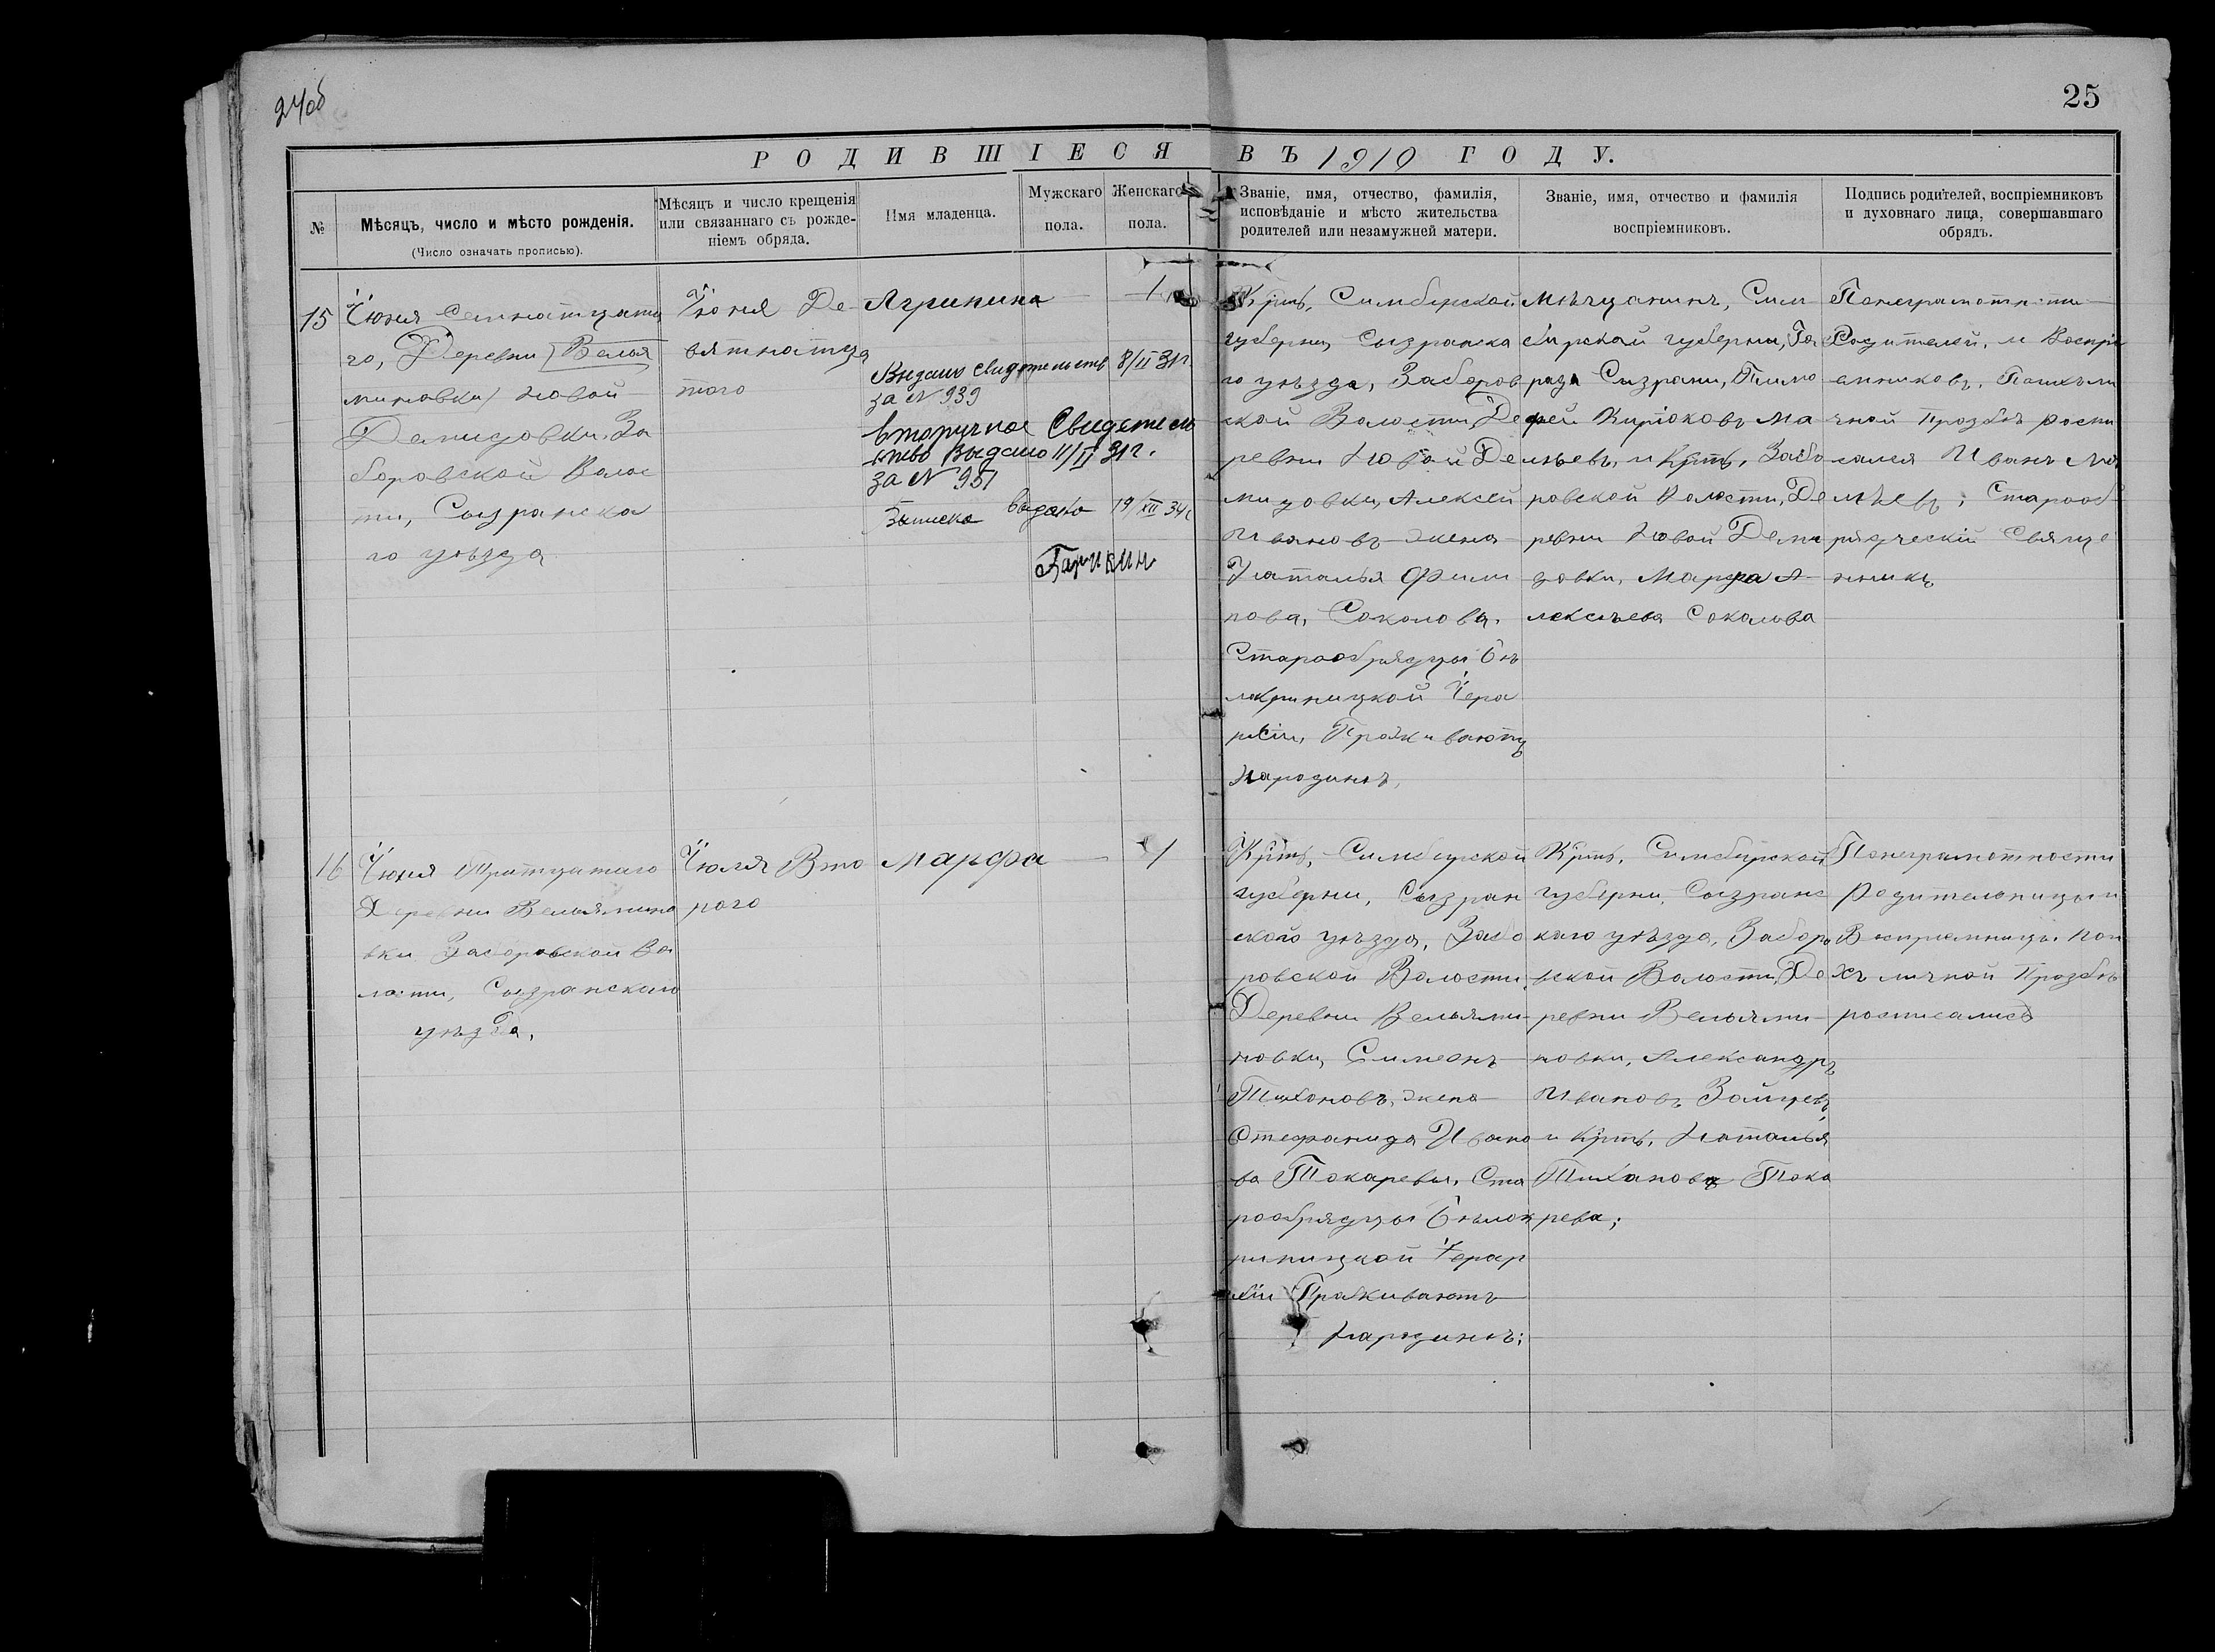 24об
25
РОДИВШІЕСЯ ВЪ 1910 ГОДУ.
№
Мѣсяцъ, число и мѣсто рожденія.
(Число означать прописью).
Мѣсяцъ и число крещенія
или связаннаго съ рожде-
ніемъ обряда.
Имя младенца.
Мужскаго
пола.
Женскаго
пола.
Званіе, имя, отчество, фамилія,
исповѣданіе и мѣсто жительства
родителей или незамужней матери.
Званіе, имя, отчество и фамилія
воспріемниковъ.
Подпись родителей, воспріемниковъ
и духовнаго лица, совершавшаго
обрядъ.
15
Їюня Семнатцата
го, Деревни (Велья
миновки) Новой
Демидовки. За
боровской Волос
ти, Сызранска
го уѣзда
Їюня Де
вятнатца
того
Агрипина
1
Выдано свидетельств 8/II 31г.
за N 939
вторучное Свидетель
ство Выдано 11/II 31г.
за N 951
Выписка выдана 19/XII 34г
Крть, Симбирской
губерни, Сызранска
го уѣзда, Заборов
ской Волости, Де
ревни Новой Де
мидовки, Алексей
Ивановъ жена
Наталья Фили
пова, Соколова.
Старообрядцы бѣ
локриницкой Їера
рхіи, Проживаютъ
Народинѣ,
Мѣщанинъ, Сим
бирской губерни, Го
рода Сызрани, Тимо
фей Кирюковъ Ма
лѣевъ, и Крть, Забо
ровской Волости, Де
ревни Новой Деми
довки, Марфа А
лексѣева Сокалова
Понеграмотности
Родителей, и Воспрі
емниковъ, Поихъли
чной Прозбѣ роспи
сался Иванъ Ма
лѣевъ; Старооб
рядческій Свяще
нникъ
16
Їюня Тритцатаго
Деревни Вельямино
вки Заборовской Во
лости, Сызранскаго
уѣзда,
Їюля Вто
рого
Марфа
1
Крть, Симбирской
губерни, Сызран
ского уѣзда, Забо
ровской Волости,
Деревни Вельями
новки, Симеонъ
Тихоновъ, жена
Стефанида Ивано
ва Токаревы, Ста
рообрядцы бѣлок
риницкой Їерар
хіи Проживаютъ
Народинѣ;
Крть, Симбирской
губерни, Сызранс
каго уѣзда, Заборо
вской Волости, Де
ревни Вельями
новки, Александръ
Ивановъ Зайцевъ,
и Крть, Наталья
Тиханова Тока
рева;
Понеграмотности
Родительницы и
Воспріемницы. Пои
хъ личной Прозбѣ
росписались